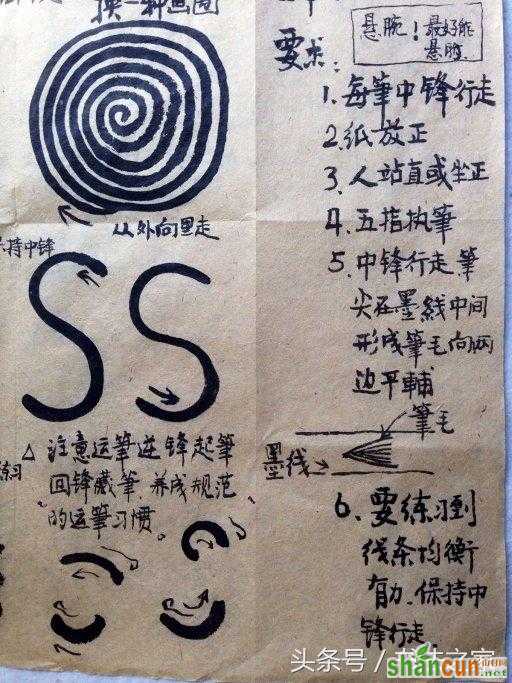 换一种画圈
从外向里走
持中锋
△ 注意运筆逆锋起筆
回锋藏筆.养成规范
的运筆习惯。
练习
悬腕！最好能
悬肘.
要求：
1. 每筆中锋行走
2.纸放正
3. 人站直或坐正
4. 五指执筆
5. 中锋行走.筆
尖在墨线中间
形成筆毛向两
边平輔
筆毛
墨线
6. 要练习到
线条均衡
有力.保持中
锋行走.
头条号／书法之家
shancun
.net